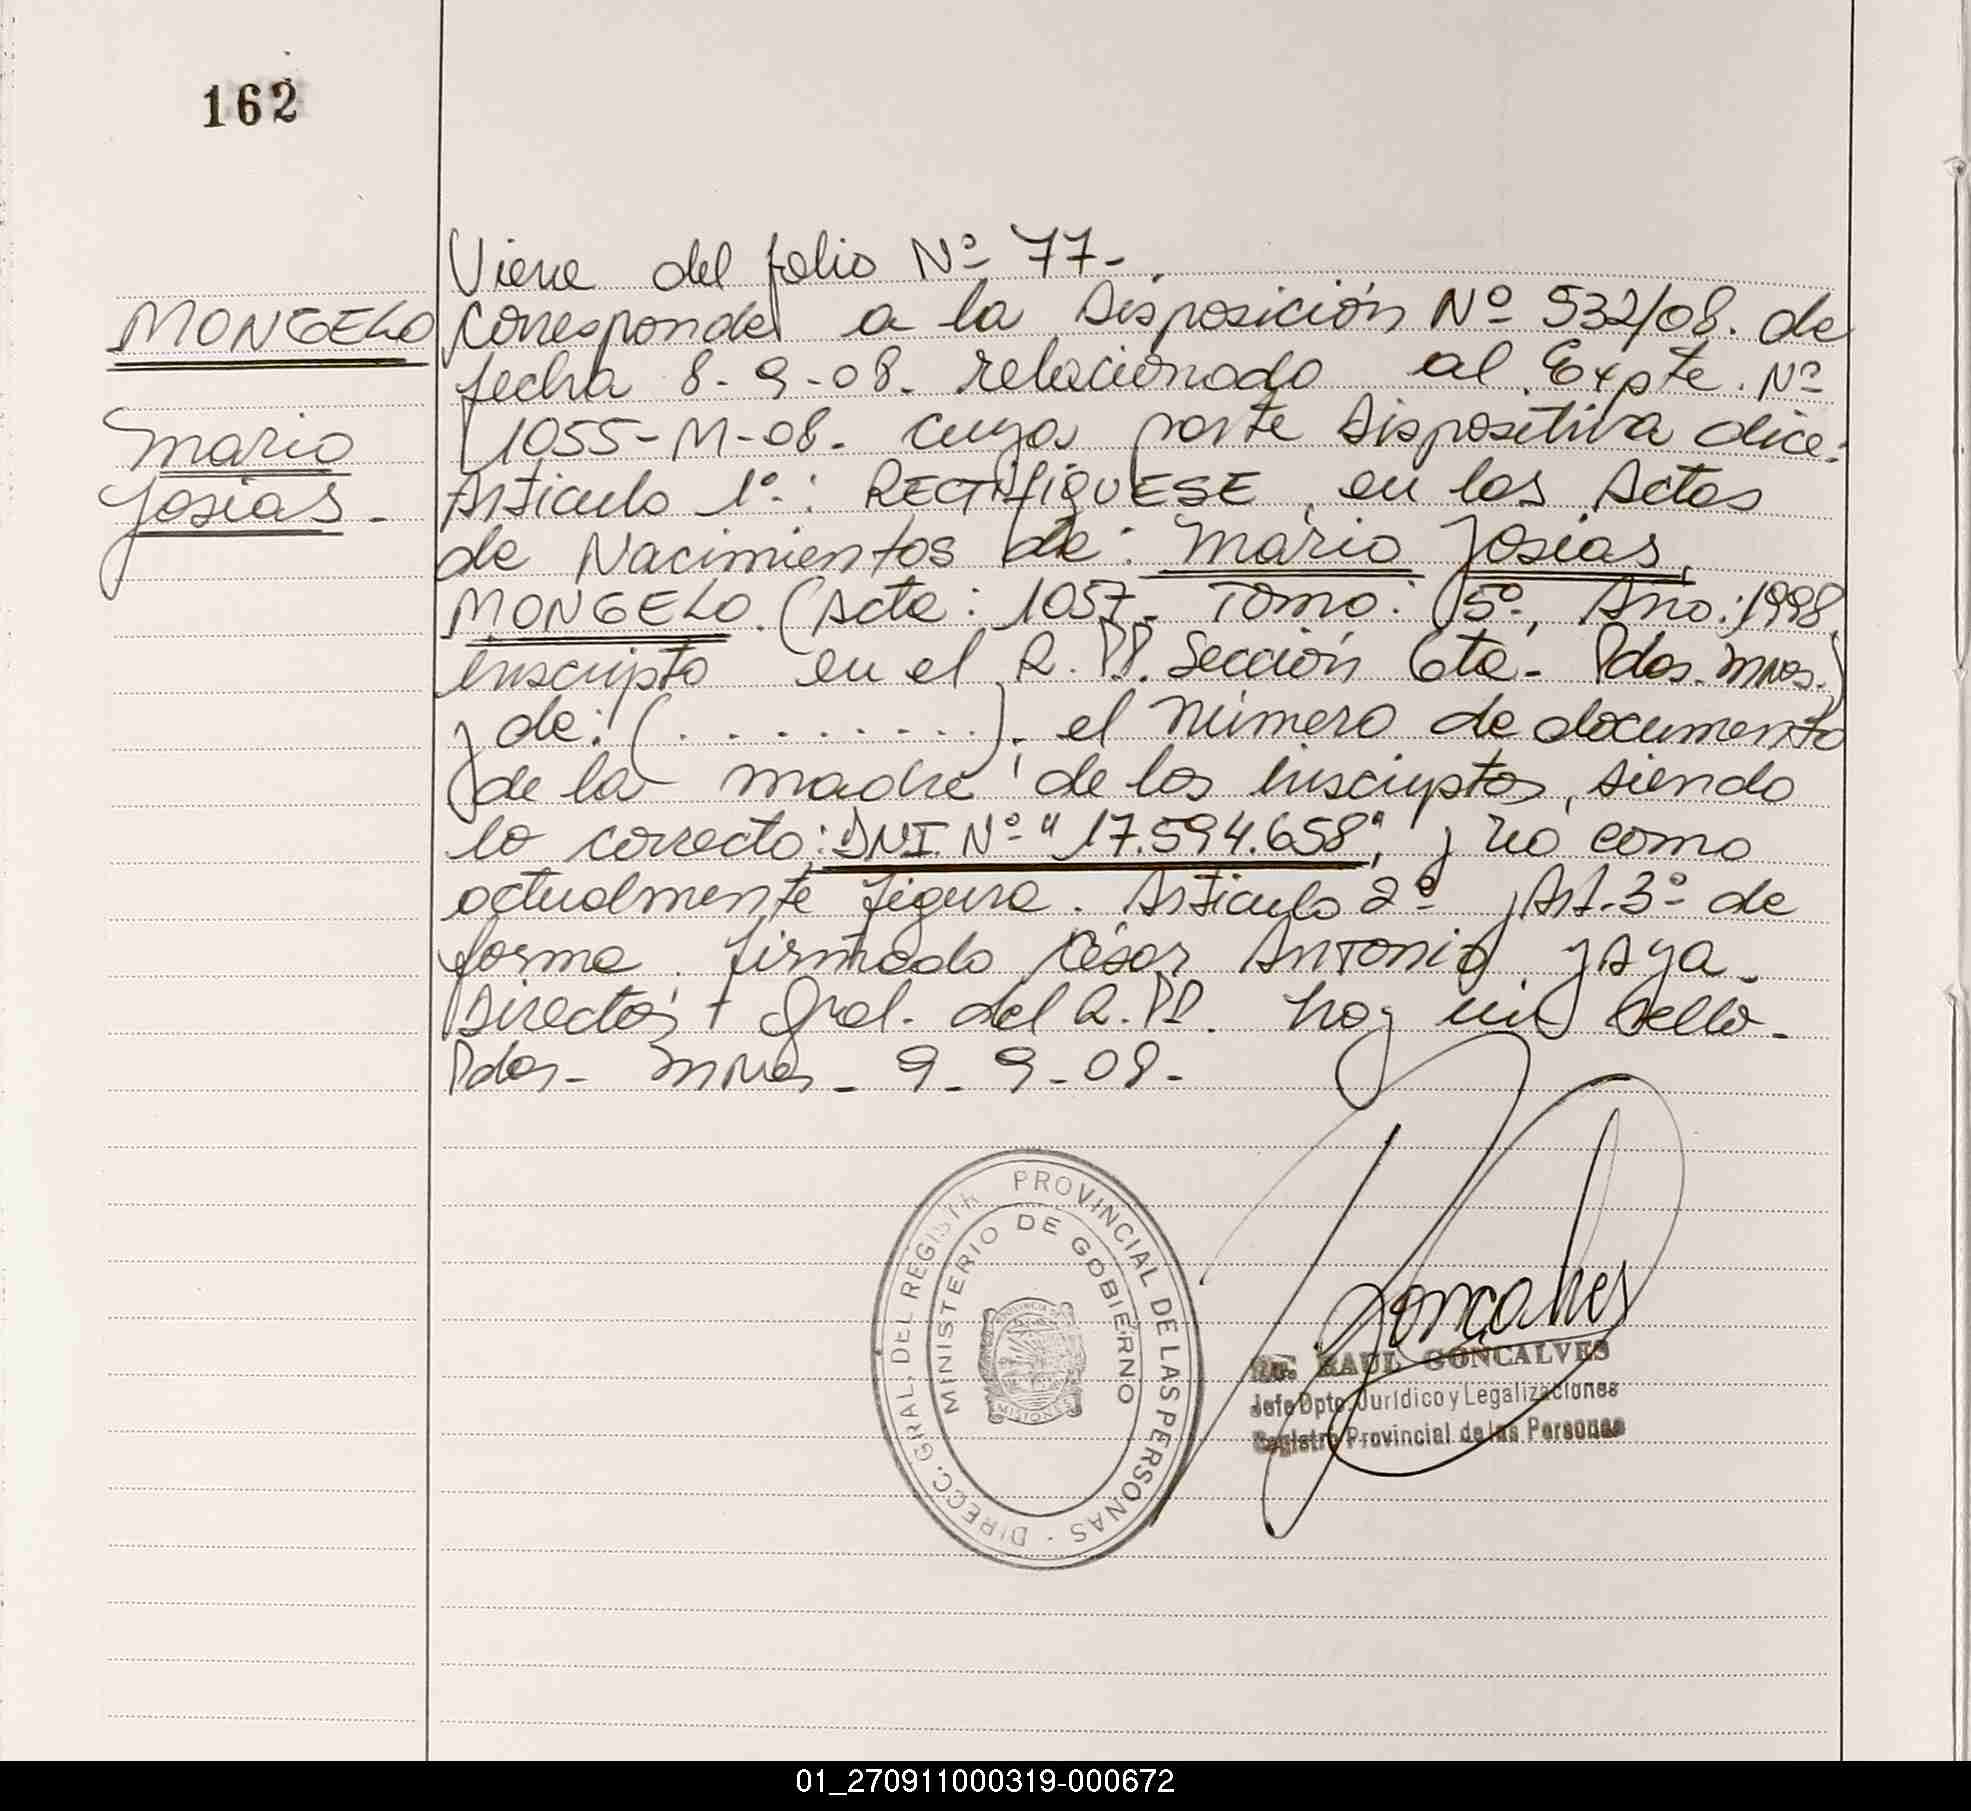 162
MONGELO
Mario
Josias -
Viene del folio Nº 77-.
Corresponde a la Disposición Nº 532/08. de
fecha 8-9-08. relacionado al Expte. Nº
1055-M-08. cuya parte Dispositiva dice:
Articulo 1º: RECTIFIQUESE, en los Actos
de Nacimientos de: Mario Josias,
MONGELO. (Acta: 1057- Tomo: 5º, Año: 1998,
inscripto en el R.PP. Sección 6ta- Pdas. Mnes.)
y de: (. . . . . . . . .), el Número de documento
de la madre de los inscriptos, siendo
lo correcto: DNI. Nº "17.594.658", y no como
actualmente figura. Articulo 2º y Art. 3º de
forma. firmado César Antonio Yaya.
Director Gral. del R.PP. hay un sello-
Pdas- Mnes- 9-9-08-
DIRECC. GRAL. DEL REGISTR PROVINCIAL DE LAS PERSONAS -
MINISTERIO DE GOBIERNO
PROVINCIA DE
MISIONES
Goncalves
RAUL GONCALVES
Jefe Dpto. Jurídico y Legalizaciones
Registro Provincial de las Personas
01_270911000319-000672